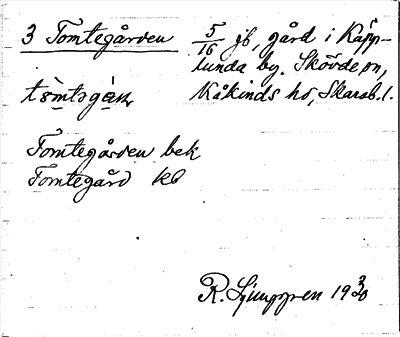 3 Tomtegården 5/16 jb, gård i Käpp-
lunda by. Skövde sn,
tòmtəgán Kåkinds hd, Skarab. l.
Tomtegården bek
Tomtegård kb
R. Ljunggren 1930